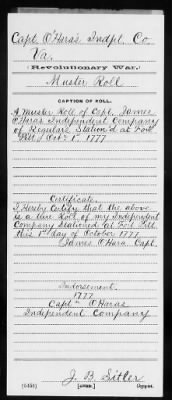 Capt. O'Hara's Indpt. Co.
Va.
(Revolutionary War.)
Muster Roll
CAPTION OF ROLL.
A Muster Roll of Capt. James
O'Haras Independent Company
of Regulars Station'd at Fort
Pitt Octr. 1st 1777
Certificate.
I Hereby Certify that the above
is a true Roll of my Independent
Company Stationed at Fort Pitt
this 1st day of October 1777
James O'Hara Capt.
Indorsement.
1777
Captn O'Haras
Independent Company
J. B. Sitler
Copyist.